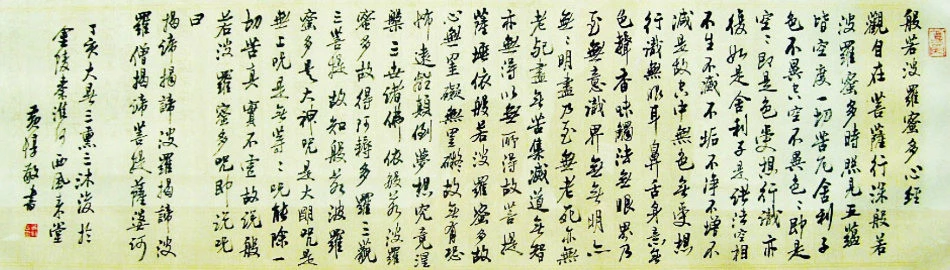 般若波羅蜜多心經
觀自在菩薩行深般若
波羅蜜多時照見五蘊
皆空度一切苦厄舍利子
色不異空空不異色々即是
空々即是色受想行識亦
復如是舍利子是諸法空相
不生不滅不垢不淨不增不
減是故空中無色無受想
行識無眼耳鼻舌身意無
色聲香味觸法無眼界乃
至無意識界無無明亦
無無明盡乃至無老死亦無
老死盡無苦集滅道無智
亦無得以無所得故菩提
薩埵依般若波羅蜜多故
心無罣礙無罣礙故無有恐
怖遠離顛倒夢想究竟涅
槃三世諸佛依般若波羅
蜜多故得阿耨多羅三藐
三菩提故知般若波羅
蜜多是大神咒是大明咒是
無上咒是無等々咒能除一
切苦真實不虛故說般
若波羅蜜多咒即說咒
曰
揭諦揭諦波羅揭諦波
羅僧揭諦菩提薩婆訶
丁亥大春三熏三沐後於
金陵秦淮河西風來堂
敬書